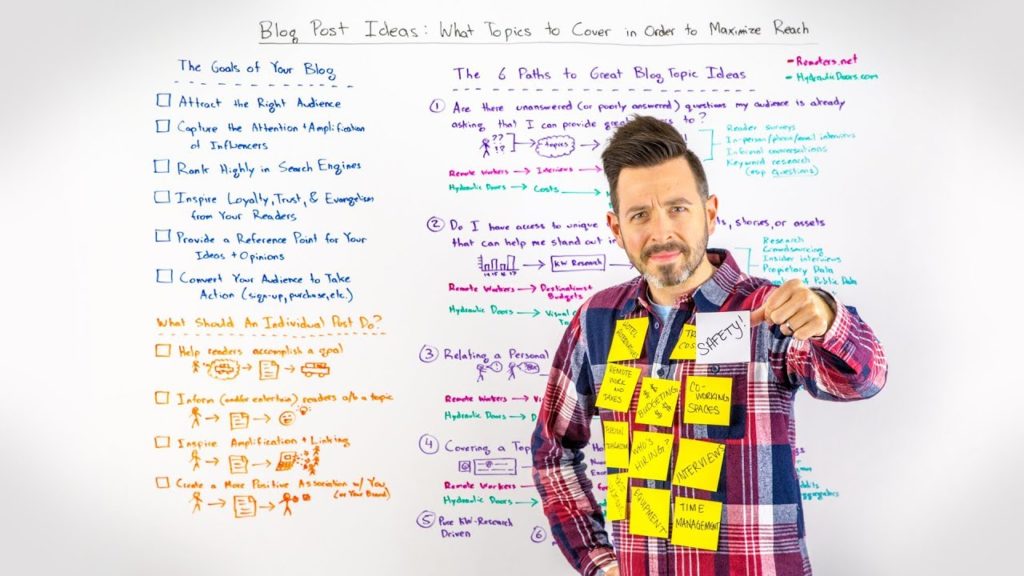 Blog Post Ideas: What Topics to Cover in Order to Maximize Reach
The Goals of Your Blog
Attract the Right Audience
Capture the Attention + Amplification
of Influencers
Rank Highly in Search Engines
Inspire Loyalty, Trust, & Evangelism
from Your Readers
Provide a Reference Point for Your
Ideas + Opinions
Convert Your Audience to Take
Action (sign-up, purchase, etc.)
What Should An Individual Post Do?
Help readers accomplish a goal
Inform (and/or entertain) readers a/b a topic
Inspire Amplification + Linking
Create a More Positive Association w/ You
(or Your Brand)
The 6 Paths to Great Blog Topic Ideas
- Remoters.net
- HydraulicDoors.com
1 Are there unanswered (or poorly answered) questions my audience is already
asking that I can provide to?
?? ??
topics
Reader surveys
In-person/phone/email interviews
Informal conversations
Keyword research
(esp questions)
Remote Workers → Interviews →
Hydraulic Doors → Costs
2 Do I have access to unique stories, or assets
that can help me stand out
KW Research
Research
Crowdsourcing
Insider interviews
Proprietary Data
of Public Data
Remote Workers → Destinations +
Budgets
Hydraulic Doors → Visual
3 Relating a Personal
Remote Workers →
Hydraulic Doors →
4 Covering a Top
Remote Workers →
Hydraulic Doors →
5 Pure KW-Research
Driven
6
HOTEL
SAFETY!
REMOTE
WORK
AND
TAXES
$ $
BUDGETING
$ $
CO-
WORKING
SPACES
WHO'S
HIRING?
INTERVIEWS
EQUIPMENT
TIME
MANAGEMENT